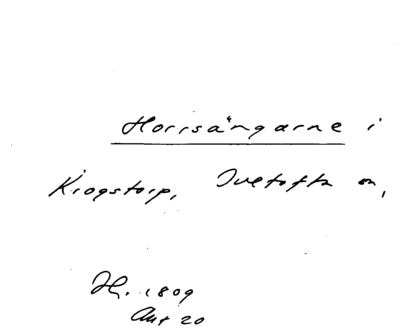 Horrsängarne i
Krogstorp, Ivetofta sn,
H. 1809
Akt 20